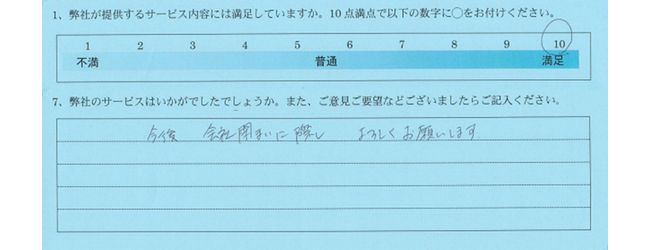 1、弊社が提供するサービス内容には満足していますか。10点満点で以下の数字に○をお付けください。
1 2 3 4 5 6 7 8 9 10
不満 普通 満足
7、弊社のサービスはいかがでしたでしょうか。また、ご意見ご要望などございましたらご記入ください。
今後 会社 に際し よろしくお願いします